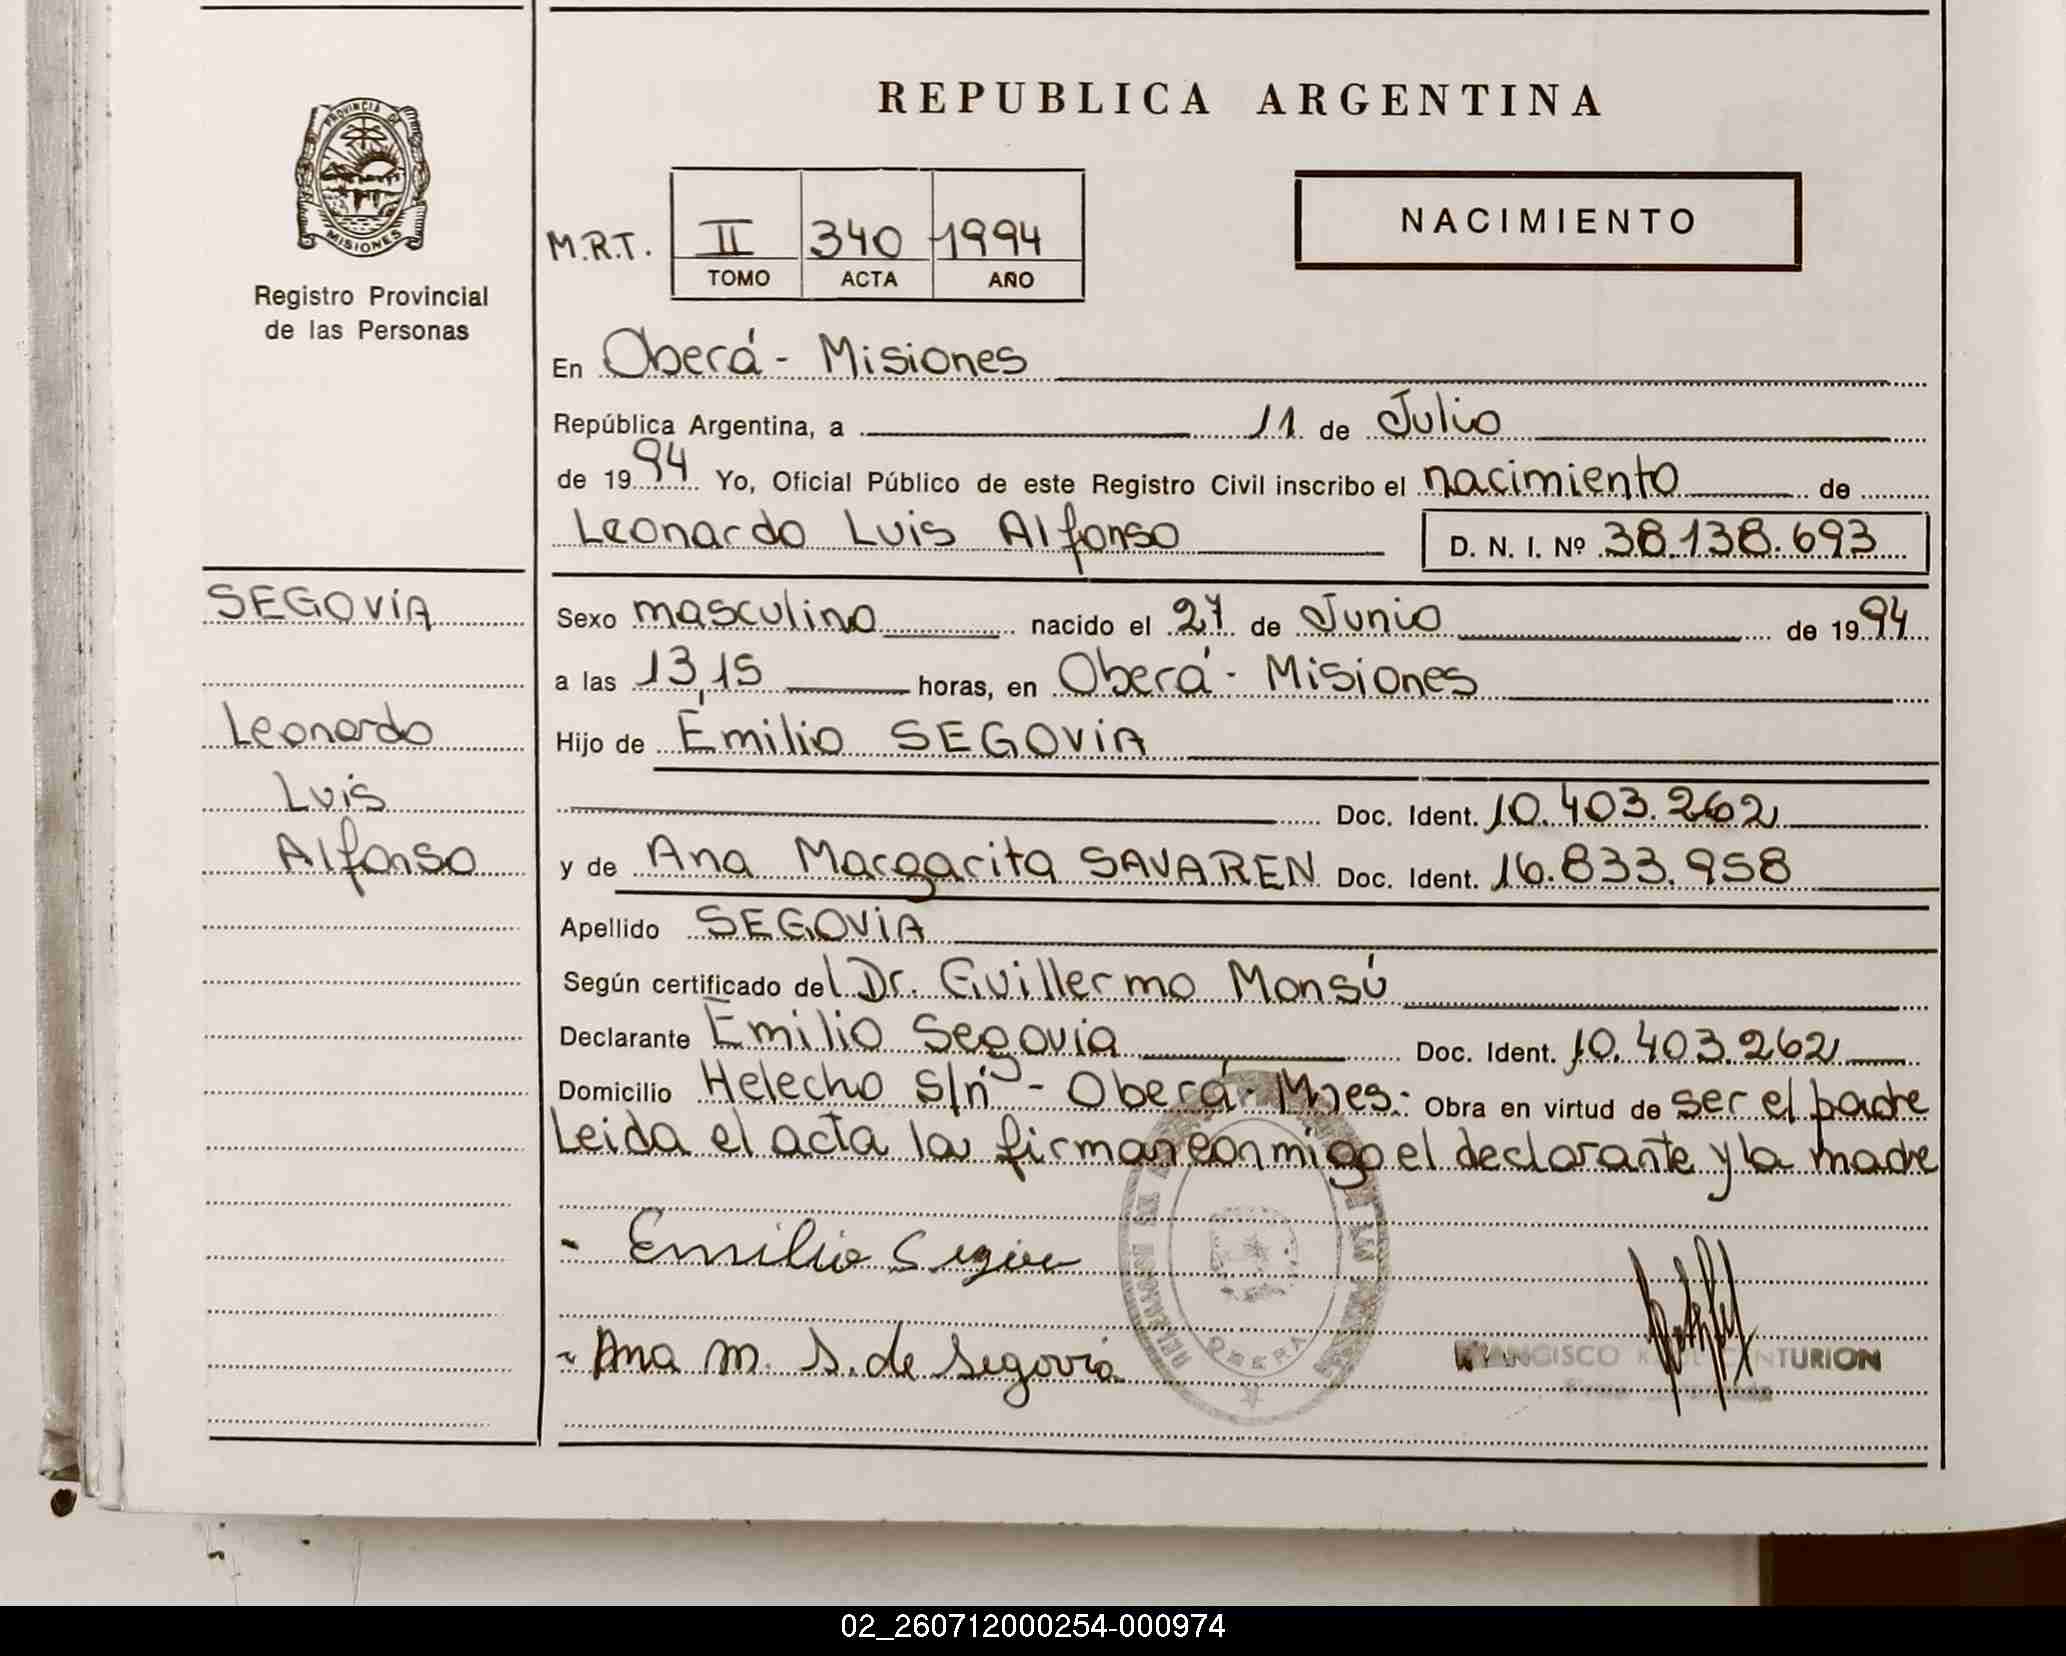 REPUBLICA ARGENTINA
PROVINCIA DE
MISIONES
Registro Provincial
de las Personas
M.R.T. II 340 1994
TOMO ACTA AÑO
NACIMIENTO
En Oberá - Misiones
República Argentina, a 11 de Julio
de 1994 Yo, Oficial Público de este Registro Civil inscribo el nacimiento de
Leonardo Luis Alfonso D. N. I. Nº 38.138.693
SEGOVIA
Leonardo
Luis
Alfonso
Sexo masculino nacido el 27 de Junio de 1994
a las 13,15 horas, en Oberá - Misiones
Hijo de Emilio SEGOVIA
Doc. Ident. 10.403.262
y de Ana Margarita SAVAREN Doc. Ident. 16.833.958
Apellido SEGOVIA
Según certificado del Dr. Guillermo Monsú
Declarante Emilio Segovia Doc. Ident. 10.403.262
Domicilio Helecho s/nº - Oberá - Mnes.- Obra en virtud de ser el padre
Leida el acta la firman conmigo el declarante y la madre
- Emilio Segovia
- Ana M. S. de Segovia
OBERA
FRANCISCO CENTURION
02_260712000254-000974